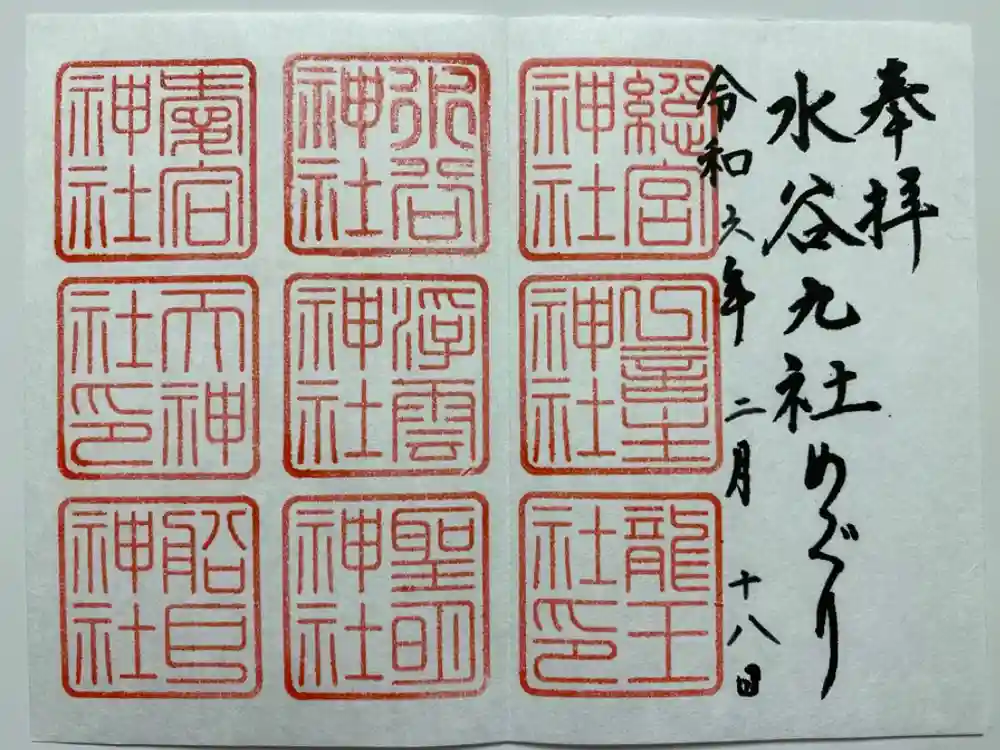 奉拝
水谷九社めぐり
令和六年二月十八日
總宮神社
一言主神社
龍王社印
水谷神社
浮雲神社
聖明神社
愛宕神社
天神社印
船戸神社